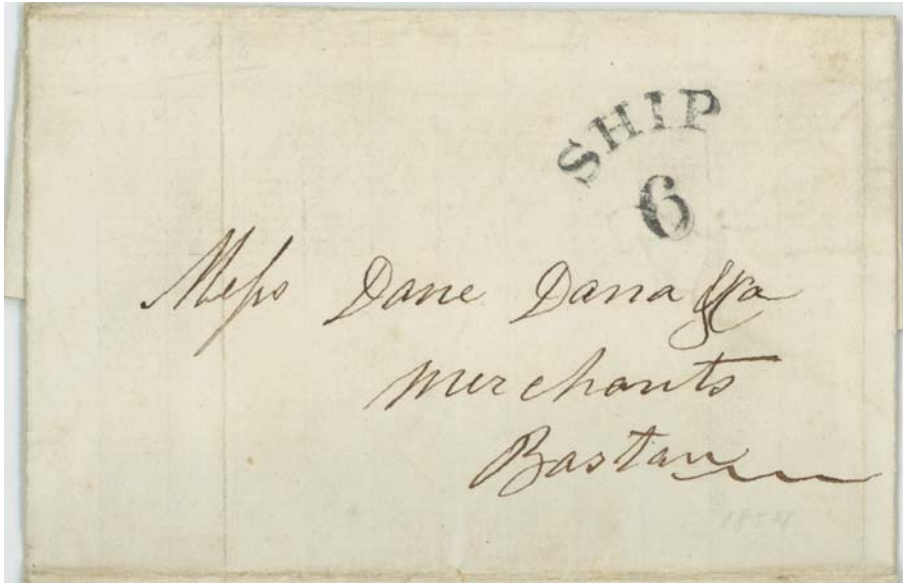 SHIP
6
Mess Dane Dana &Co
Merchants
Boston
1854